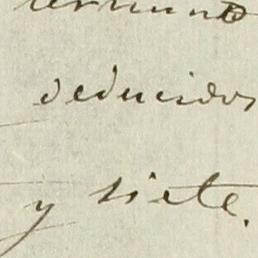 deducidos
y siete.